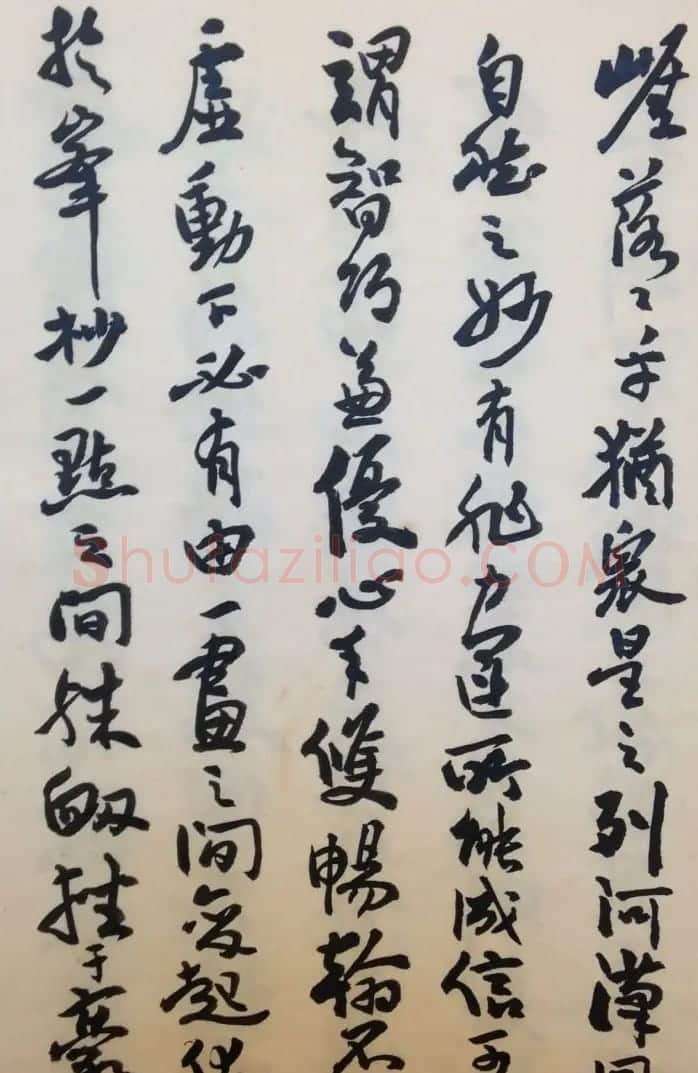 崖落々乎猶眾星之列河漢同
自然之妙有非力運所能成信可
謂智巧兼優心手雙暢翰不
虛動下必有由一畫之間變起伏
於峯杪一點之間殊衄挫于豪
Shufaziliao.COM